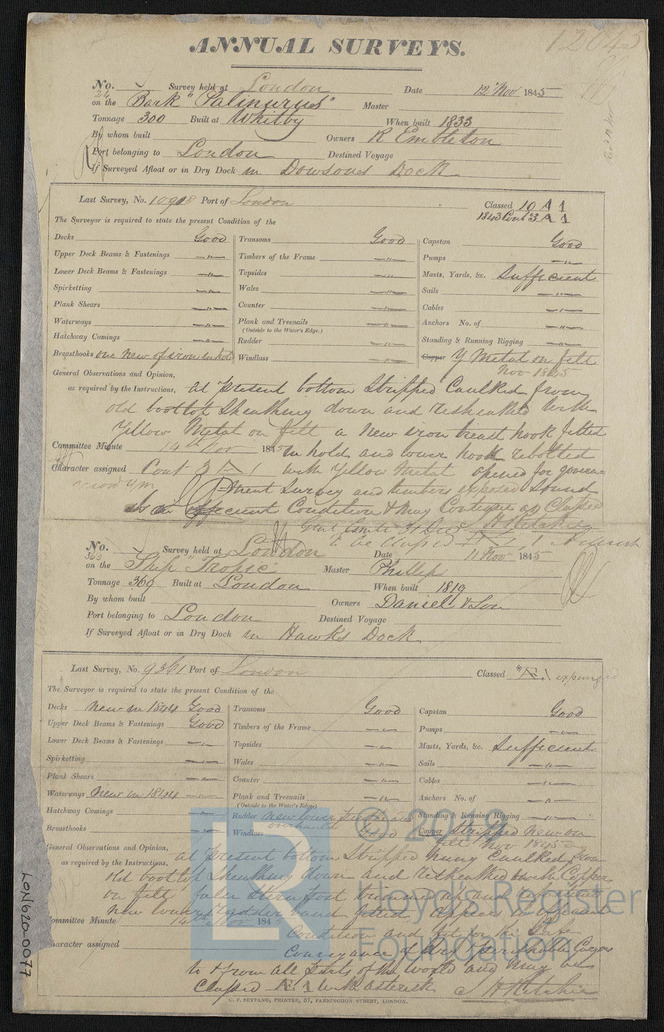 12045
ANNUAL SURVEYS.
No. 24 Survey held at London Date 12 Nov 1845
on the Bark "Palinurus" Master
Tonnage 300 Built at Whitby When built 1833
By whom built Owners R Embleton
Port belonging to London Destined Voyage
If Surveyed Afloat or in Dry Dock in Dowsons Dock
Last Survey, No. 10908 Port of London Classed 10 A 1
1843 Cont 3 A 1
The Surveyor is required to state the present Condition of the
Decks Good Transoms Good Capstan Good
Upper Deck Beams & Fastenings " Timbers of the Frame " Pumps "
Lower Deck Beams & Fastenings " Topsides " Masts, Yards, &c. Sufficient
Spirketting " Wales " Sails "
Plank Shears " Counter " Cables "
Waterways " Plank and Treenails " Anchors No. of "
(Outside to the Water's Edge.)
Hatchway Comings " Rudder " Standing & Running Rigging "
Breasthooks one new of iron in hold Windlass " Copper Y Metal on felt
Nov 1845
General Observations and Opinion,
as required by the Instructions, at present bottom stripped Caulked from
old boottop Sheathing down and resheathed with
Yellow Metal on felt a new iron breast hook fitted
Committee Minute 14 Nov 1845 in hold and lower hook rebolted
Character assigned Cont 3 A 1 with Yellow Metal opened for
Survey and timbers exposed Sound
is in efficient Condition & may Continue as Classed
H Ritchie
to be Classed
No. 363 Survey held at London Date 11 Nov 1845
on the Ship "Tropic" Master Phillips
Tonnage 369 Built at London When built 1819
By whom built Owners Daniel & Son
Port belonging to London Destined Voyage
If Surveyed Afloat or in Dry Dock in Hawks Dock
Last Survey, No. 9361 Port of London Classed Æ 1 expunged
The Surveyor is required to state the present Condition of the
Decks New in 1844 Good Transoms Good Capstan Good
Upper Deck Beams & Fastenings Good Timbers of the Frame " Pumps "
Lower Deck Beams & Fastenings " Topsides " Masts, Yards, &c. Sufficient
Spirketting " Wales " Sails "
Plank Shears " Counter " Cables "
Waterways New in 1844 Plank and Treenails " Anchors No. of "
(Outside to the Water's Edge.)
Hatchway Comings " Rudder new lower Standing & Running Rigging "
Breasthooks " Windlass Good Copper Stripped new on
felt Nov 1845
General Observations and Opinion,
as required by the Instructions, at present bottom stripped Caulked from
old boottop Sheathing down and resheathed with Copper
on felt false
new rudder and fitted appears in efficient
Committee Minute 14 Nov 184 Condition and fit for the Safe
Character assigned Conveyance of Dry & Perishable Cargoes
to & from all parts of the world and may be
Classed Æ 1 with asterisk J H Ritchie
C. F. SEYFANG, PRINTER, 57, FARRINGDON STREET, LONDON.
LON620-0077
Lloyd's Register
Foundation